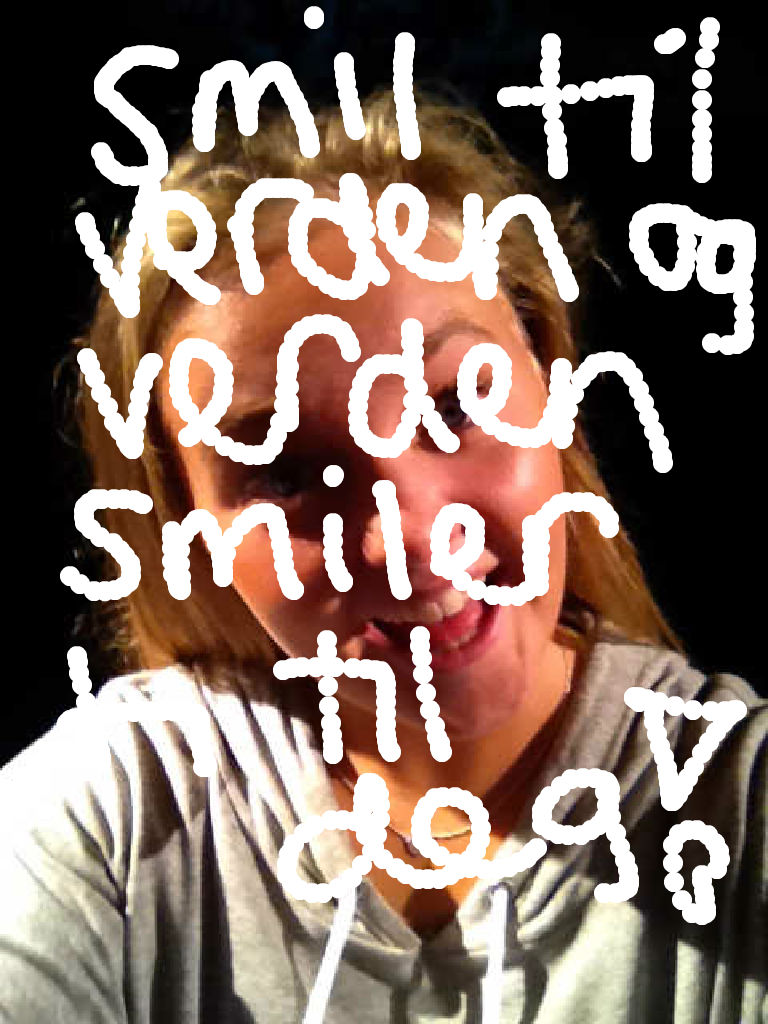 smil til
verden og
verden
smiler
til
deg